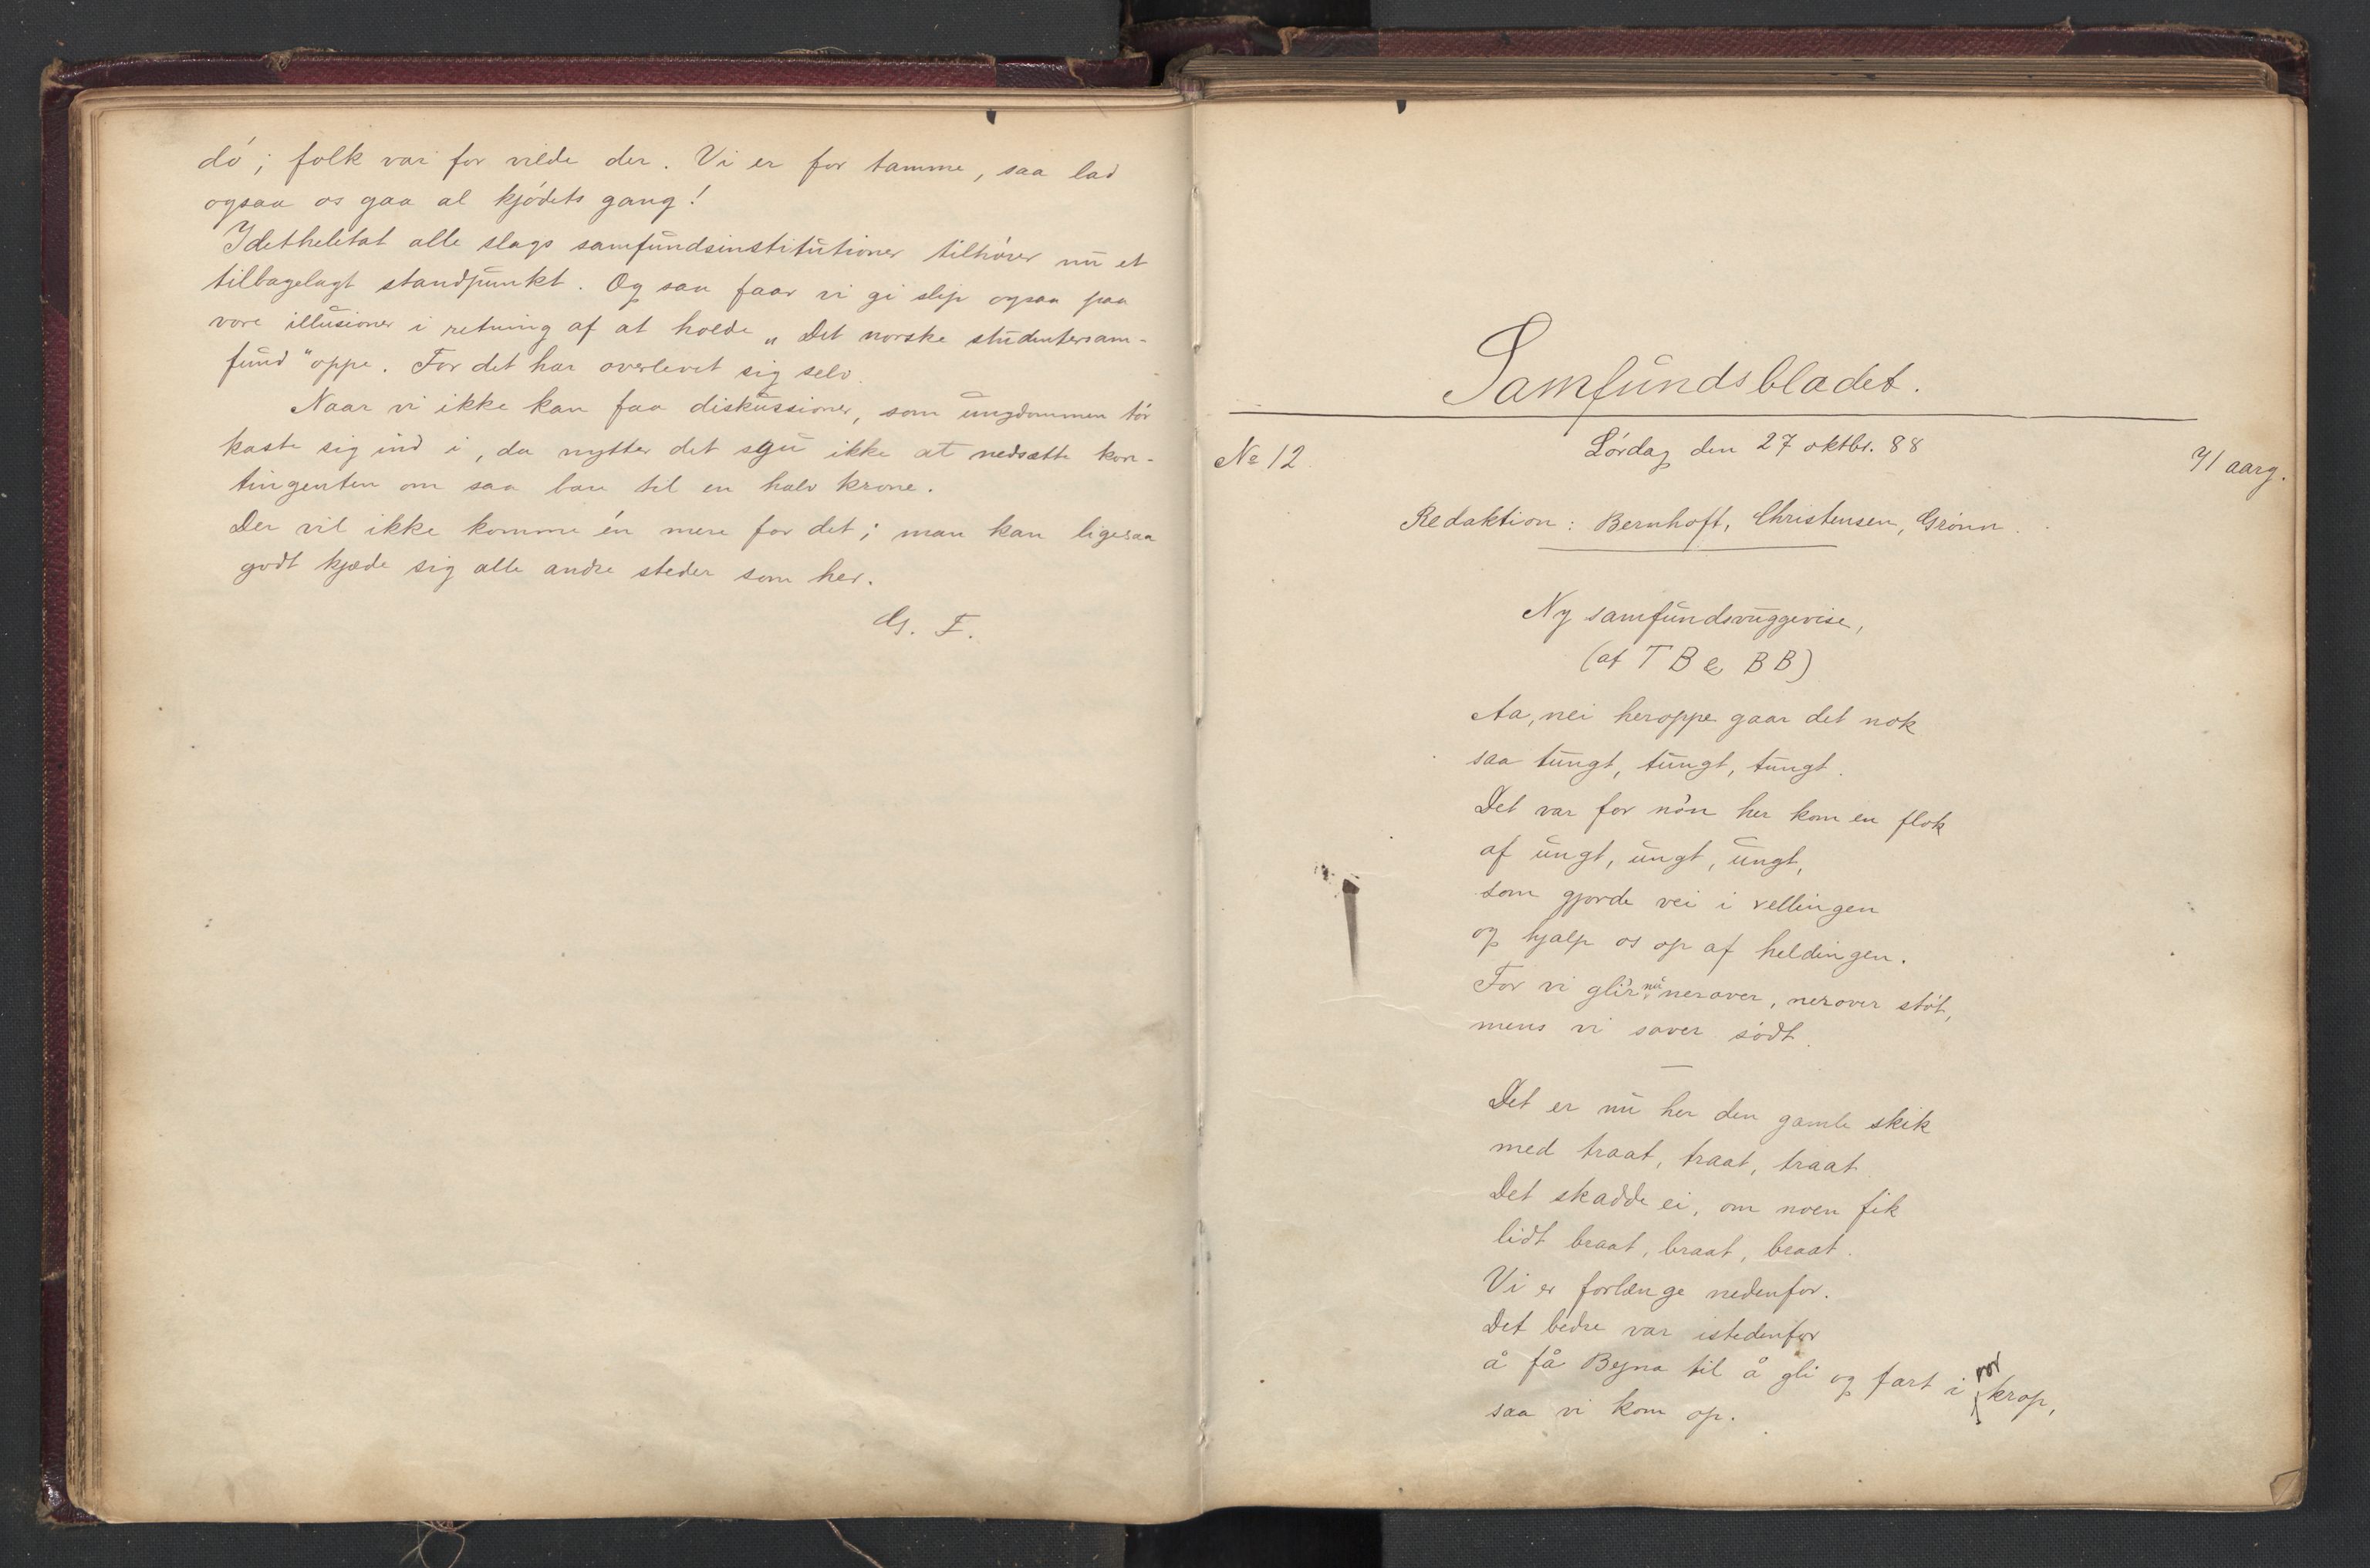 dó; folk var for vilde der. Vi er for tamme, saa lad
ogsaa os gaa al kjódets gang!
Idetheletat alle slags samfundsinstitutioner tilhórer nu et
tilbagelagt standpunkt. Og saa faar vi gi slip ogsaa paa
vore illusioner i retning af at holde „Det norske studentersam-
fund" oppe. For det har overlevet sig selv.
Naar vi ikke kan faa diskussioner, som ungdommen tór
kaste sig ind i, da nytter det sgu ikke at nedsætte kon-
tingenten om saa bare til en halv krone.
Der vil ikke komme én mere for det; man kan ligesaa
godt kjæde sig alle andre steder som her.
G. F.
Samfundsbladet.
№ 12.
Lórdag den 27 oktbr. 88
71 aarg.
Redaktion: Bernhoft, Christensen, Grónn.
Ny samfundsvuggevise,
(af T B & B B)
Aa, nei heroppe gaar det nok
saa tungt, tungt, tungt.
Det var for nón her kom en flok
af ungt, ungt, ungt,
som gjorde vei i vellingen
og hjalp os op af heldingen.
For vi glir nu nerover, nerover stót,
mens vi sover sódt.
Det er nu her den gamle skik
med traat, traat, traat
Det skadde ei, om noen fik
lidt braat, braat, braat.
Vi er forlænge nedenfor.
Det bedre var istedenfor
å få Bejna til å gli og fart i vor krop,
saa vi kom op.